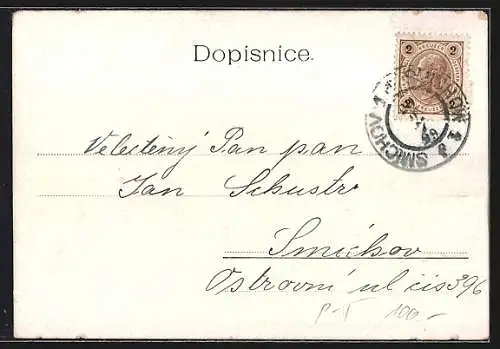 Dopisnice.
2 2
SMICHOV 1
Velectěný Pan pan
Jan Schustr
Smíchov
Ostrovní ul čís 396
P-T 100-